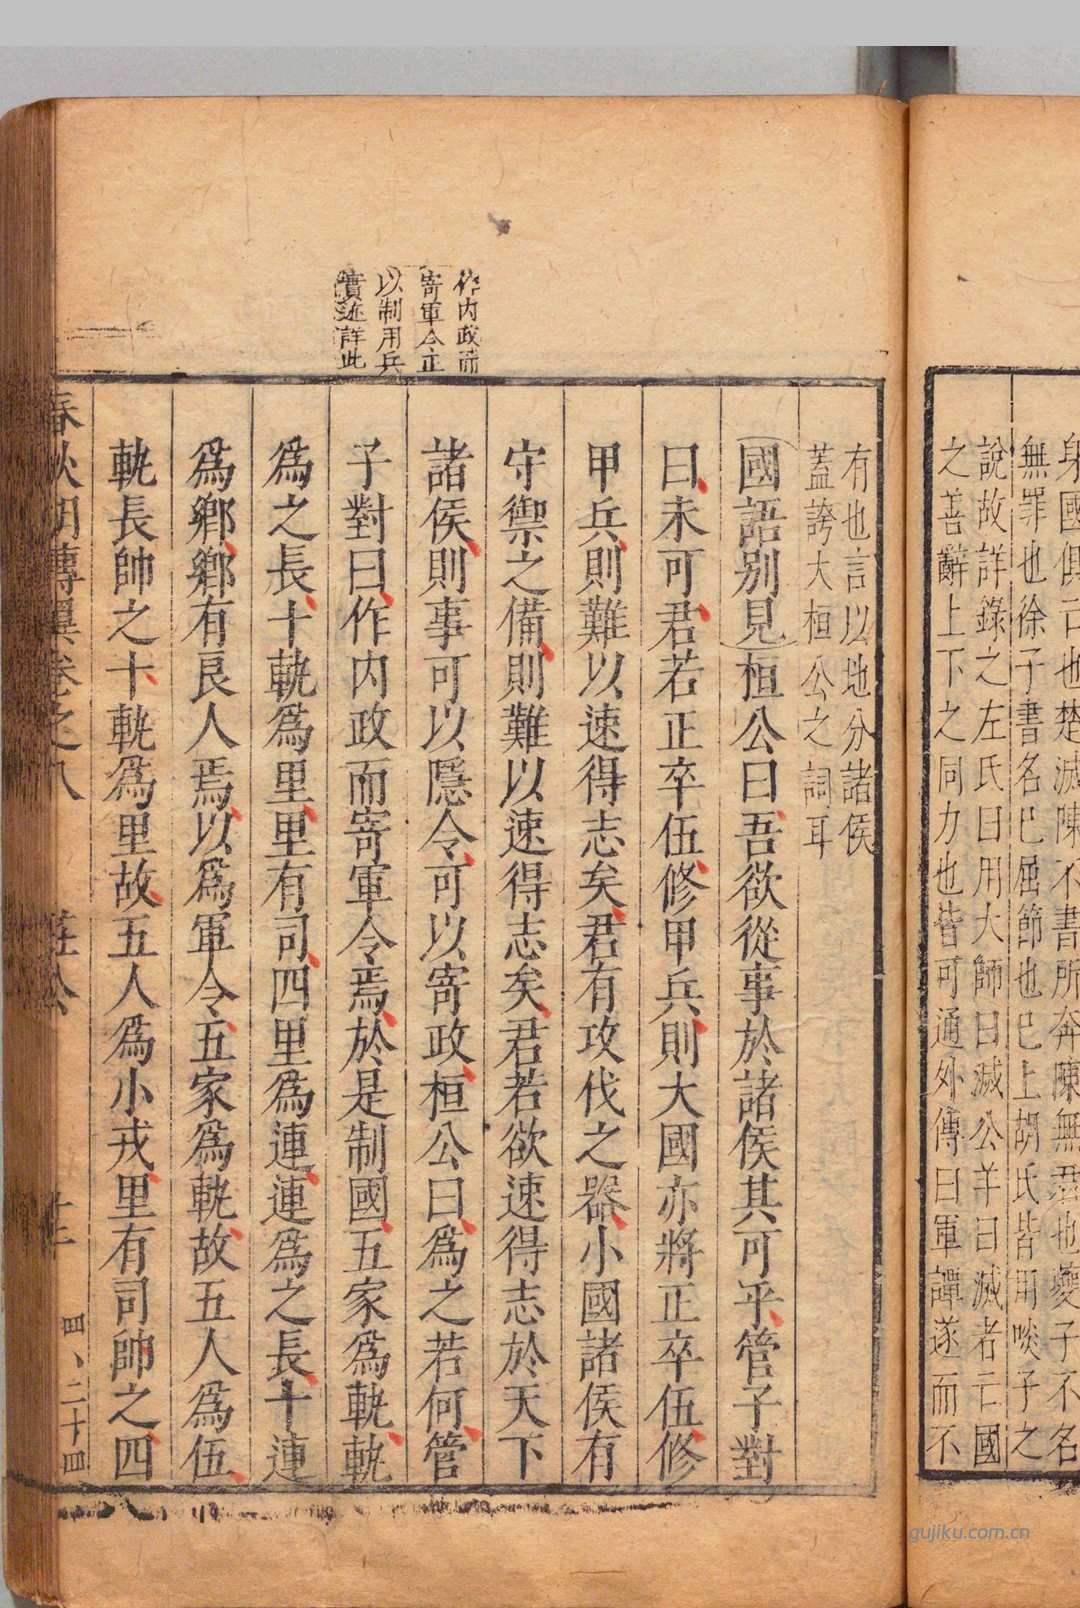 身國俱亡也楚滅陳不書所奔陳無君也夔子不名
無罪也徐子書名已屈節也已上胡氏皆用啖子之
說故詳錄之左氏曰用大師曰滅公羊曰滅者亡國
之善辭上下之同力也皆可通外傳曰軍譚遂而不
有也言以地分諸侯
蓋誇大桓公之詞耳
國語別見桓公曰吾欲從事於諸侯其可乎管子對
曰未可君若正卒伍修甲兵則大國亦將正卒伍修
甲兵則難以速得志矣君有攻伐之器小國諸侯有
守禦之備則難以速得志矣君若欲速得志於天下
諸侯則事可以隱令可以寄政桓公曰為之若何管
子對曰作內政而寄軍令焉於是制國五家為軌軌
為之長十軌為里里有司四里為連連為之長十連
為鄉鄉有良人焉以為軍令五家為軌故五人為伍
軌長帥之十軌為里故五人為小戎里有司帥之四
作內政而
寄軍令正
以制用兵
實迹詳此
春秋胡傳翼卷之八 莊公 四、二十四
gujiku.com.cn